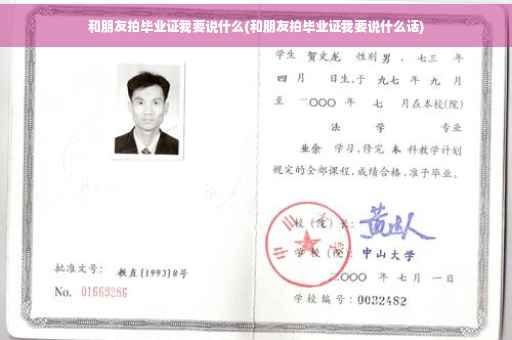 和朋友拍毕业证我要说什么(和朋友拍毕业证我要说什么话)
学生 贺文龙 性别 男 、七三 年
四 月 日生,于 九七 年 九 月
至 二〇〇〇 年 七 月在本校(院)
法 学 专业
业余 学习,修完 本 科教学计划
规定的全部课程,成绩合格,准予毕业。
校(院)长:
学校(院): 中山大学
批准文号: 教直[1993]8号
二〇〇〇 年 七 月 一 日
No. 01669286
学校编号: 0032482